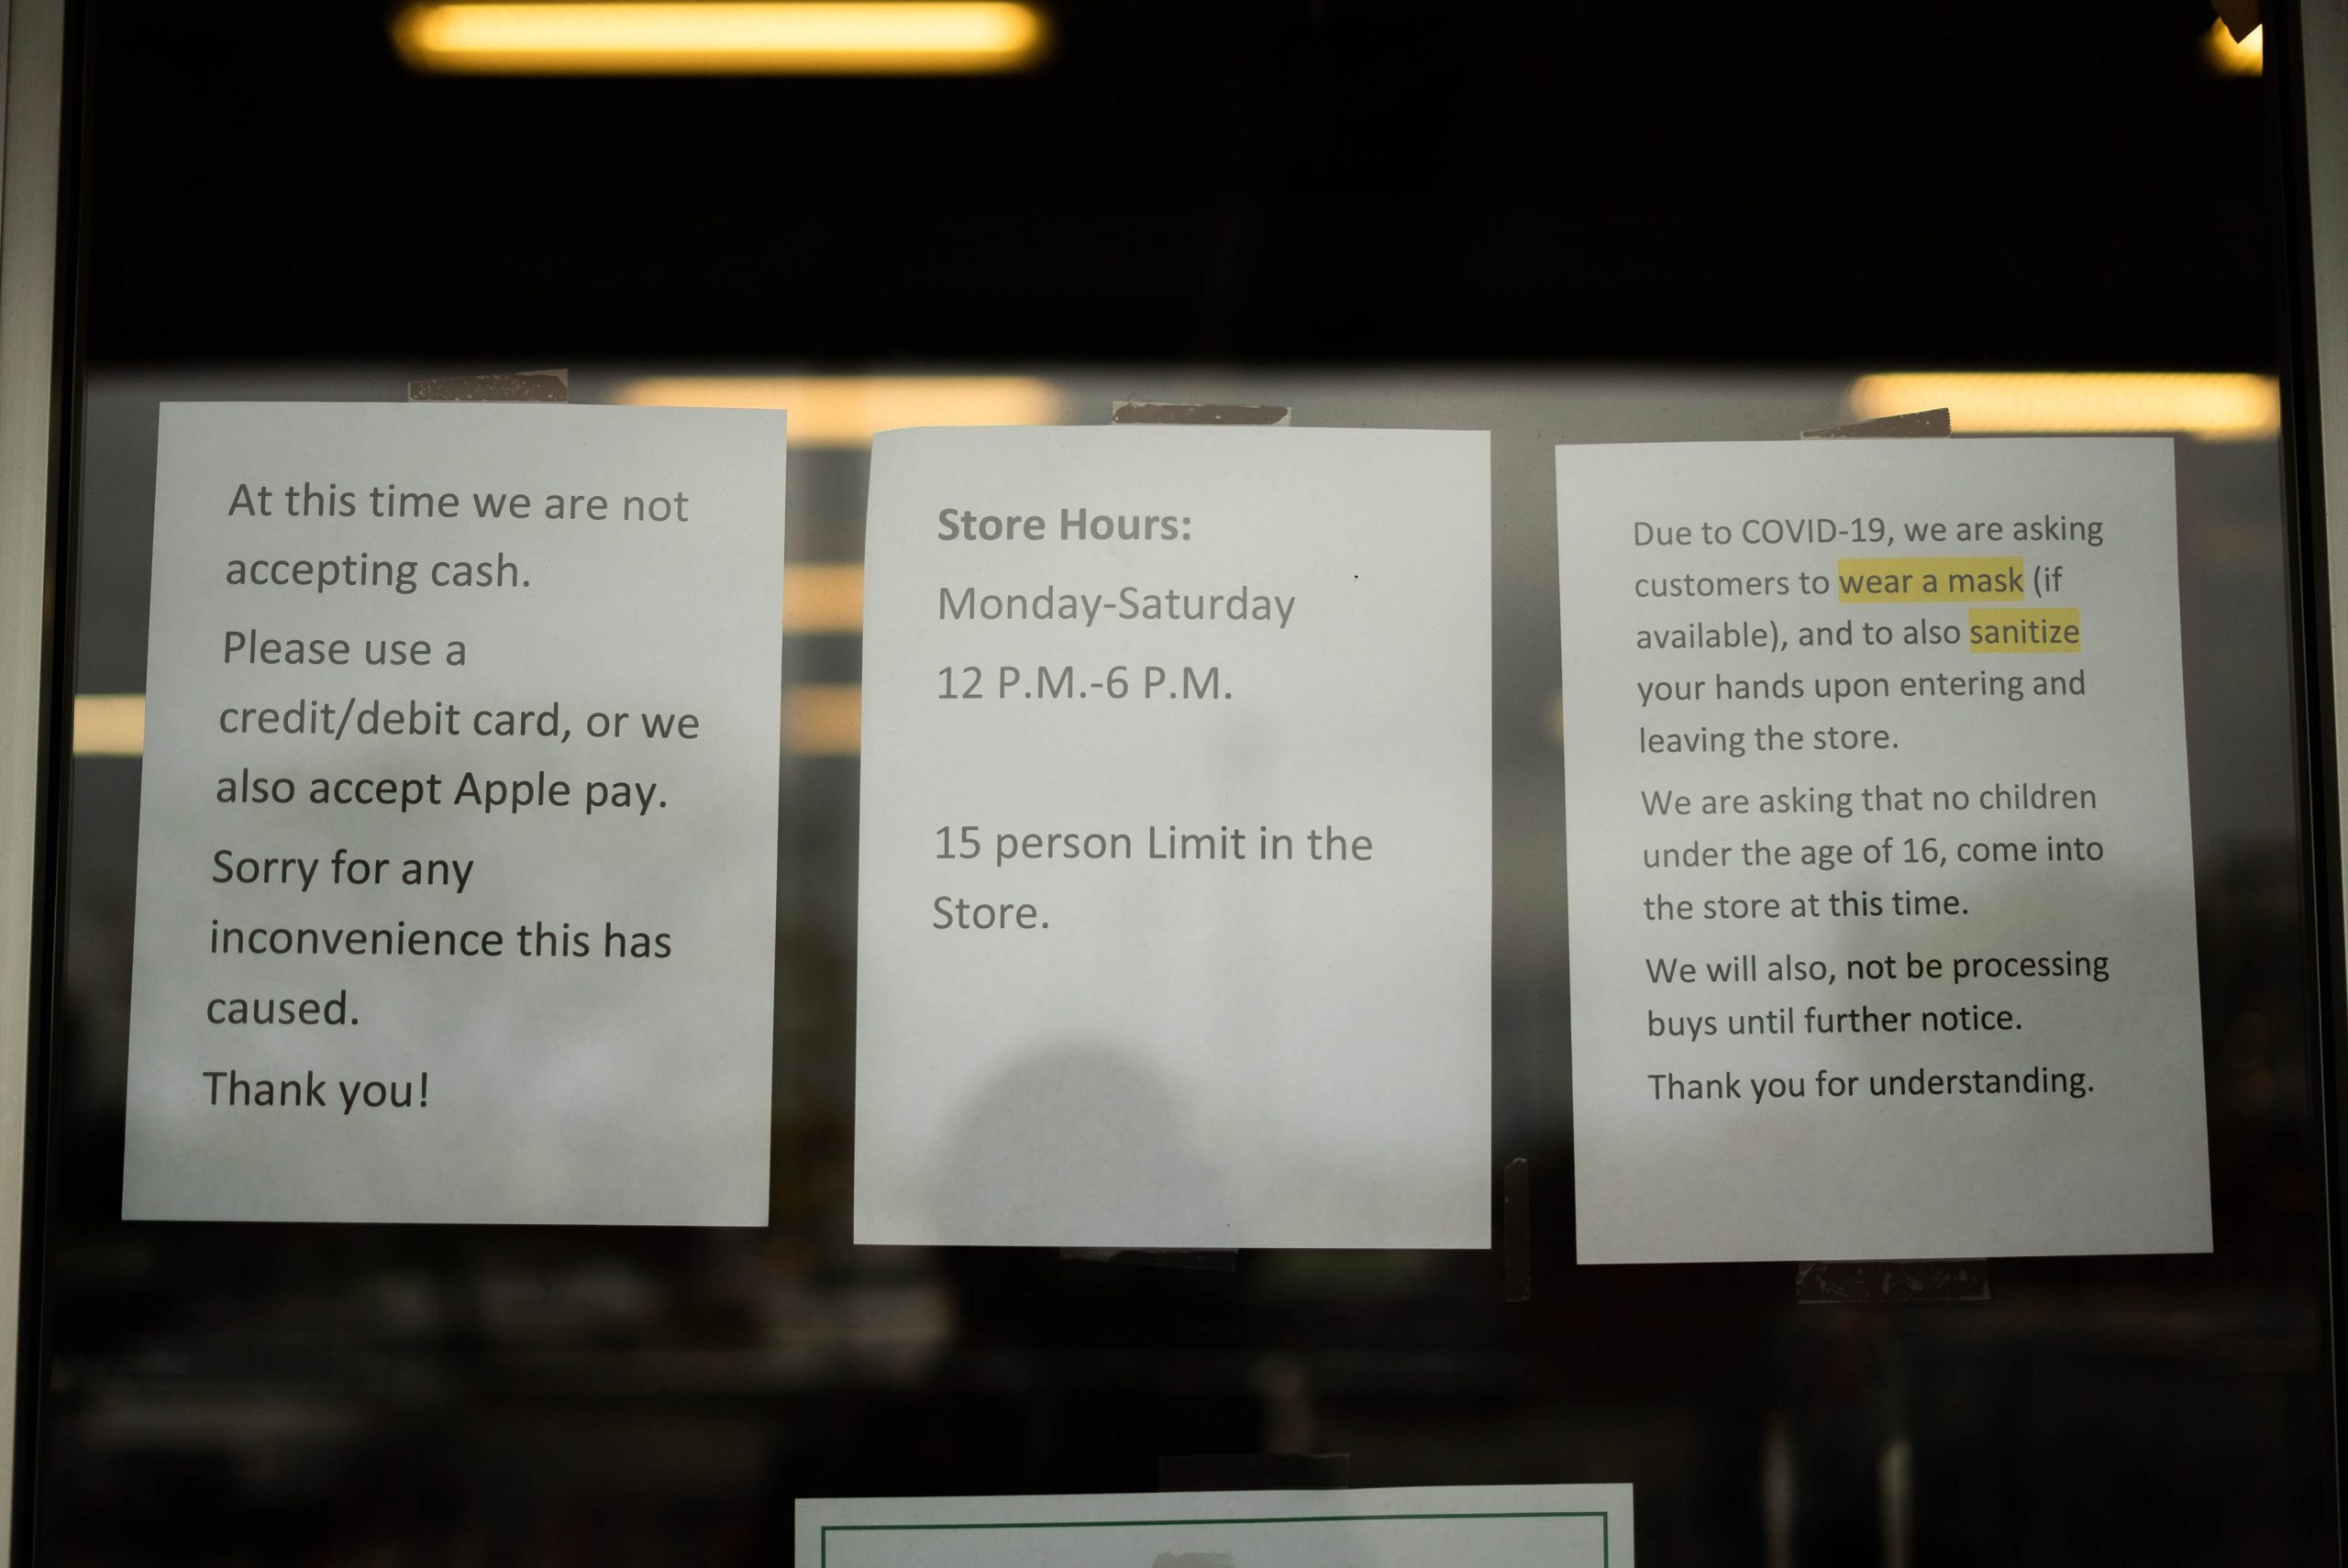 At this time we are not
accepting cash.
Please use a
credit/debit card, or we
also accept Apple pay.
Sorry for any
inconvenience this has
caused.
Thank you!
Store Hours:
Monday-Saturday
12 P.M.-6 P.M.
15 person Limit in the
Store.
Due to COVID-19, we are asking
customers to wear a mask (if
available), and to also sanitize
your hands upon entering and
leaving the store.
We are asking that no children
under the age of 16, come into
the store at this time.
We will also, not be processing
buys until further notice.
Thank you for understanding.